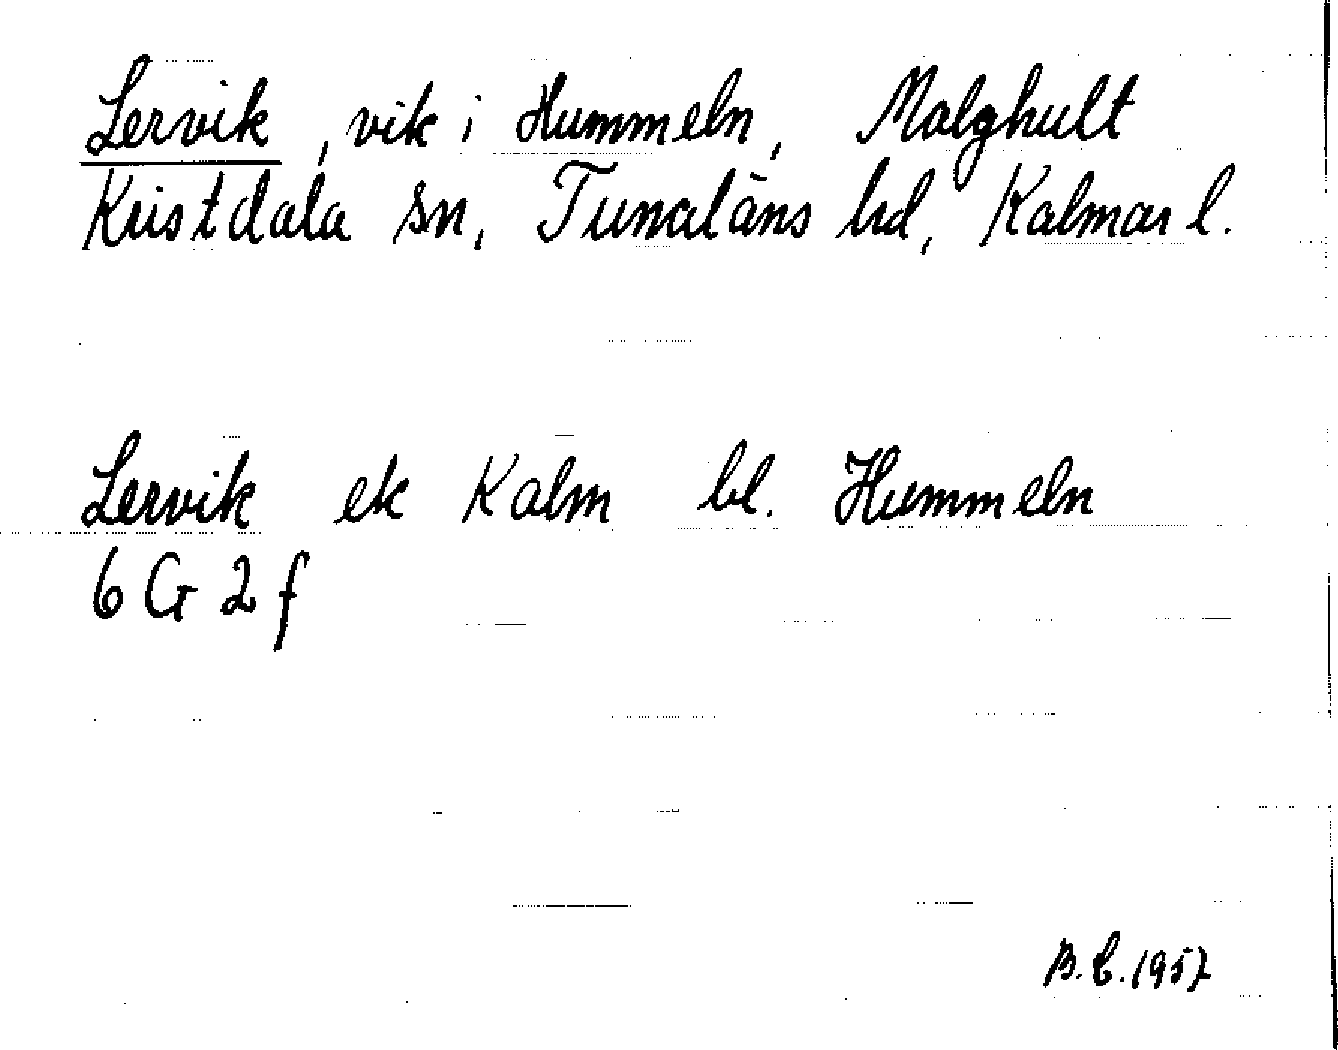 Lervik, vik i Hummeln, Malghult
Kristdala sn, Tunaläns hd, Kalmar l.
Lervik ek Kalm bl. Hummeln
6 G 2 f
B.C. 1957